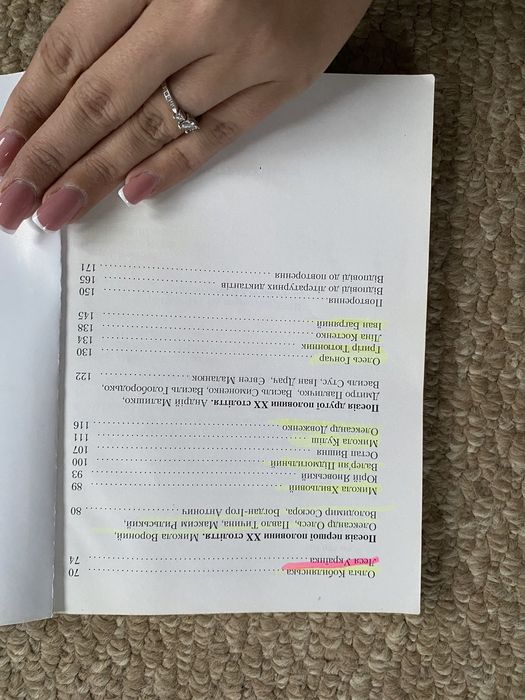 Ольга Кобилянська 70
Леся Українка 74
Поезія першої половини ХХ століття. Микола Вороний,
Олександр Олесь, Павло Тичина, Максим Рильський,
Володимир Сосюра, Богдан-Ігор Антонич 80
Микола Хвильовий 89
Юрій Яновський 93
Валер'ян Підмогильний 100
Остап Вишня 107
Микола Куліш 111
Олександр Довженко 116
Поезія другої половини ХХ століття. Андрій Малишко,
Дмитро Павличко, Василь Симоненко, Василь Голобородько,
Василь Стус, Іван Драч, Євген Маланюк 122
Олесь Гончар 130
Григір Тютюнник 134
Ліна Костенко 138
Іван Багряний 145
Повторення 150
Відповіді до літературних диктантів 165
Відповіді до повторення 171